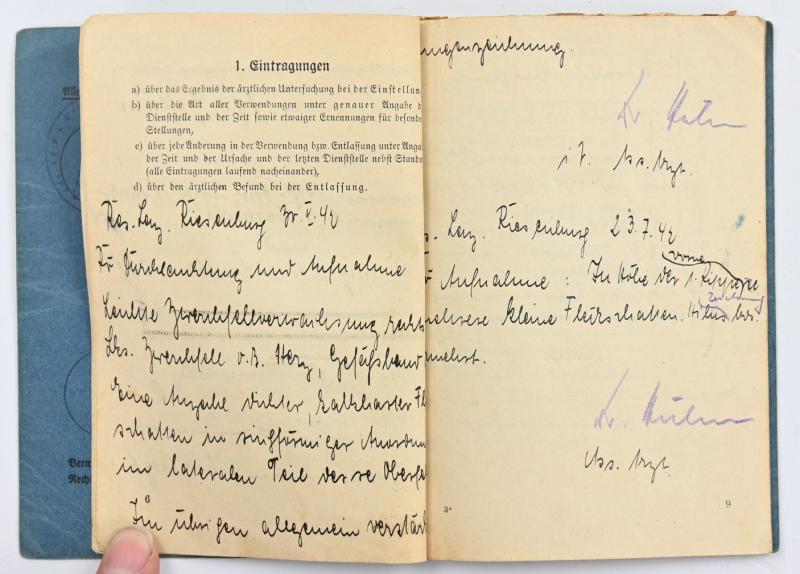 1. Eintragungen
a) über das Ergebnis der ärztlichen Untersuchung bei der Einstellun
b) über die Art aller Verwendungen unter genauer Angabe d
Dienststelle und der Zeit sowie etwaiger Ernennungen für besonde
Stellungen,
c) über jede Änderung in der Verwendung bzw. Entlassung unter Anga
der Zeit und der Ursache und der letzten Dienststelle nebst Stando
(alle Eintragungen laufend nacheinander),
d) über den ärztlichen Befund bei der Entlassung.
Res. Laz. Riesenburg V. 42
Durchleuchtung und Aufnahme
Leichte Zwerchfellverwachsung rechts
Lks. Zwerchfell o. B. Herz, Gefäßband
Eine Anzahl dichter, kalkharter Fl
schatten in ringförmiger Anordnun
im lateralen Teil des re Oberfe
6
Im übrigen allgemein verstärk
ungenzeichnung.
Dr.
Ass. Arzt.
Laz. Riesenburg 23.7.42
vorne
Aufnahme: In Höhe der 1. Rippe
zeichnung
mehrere kleine Fleckschatten. Hilus bds.
mehrt.
Dr.
Ass. Arzt.
3*
9
Verw
Recht